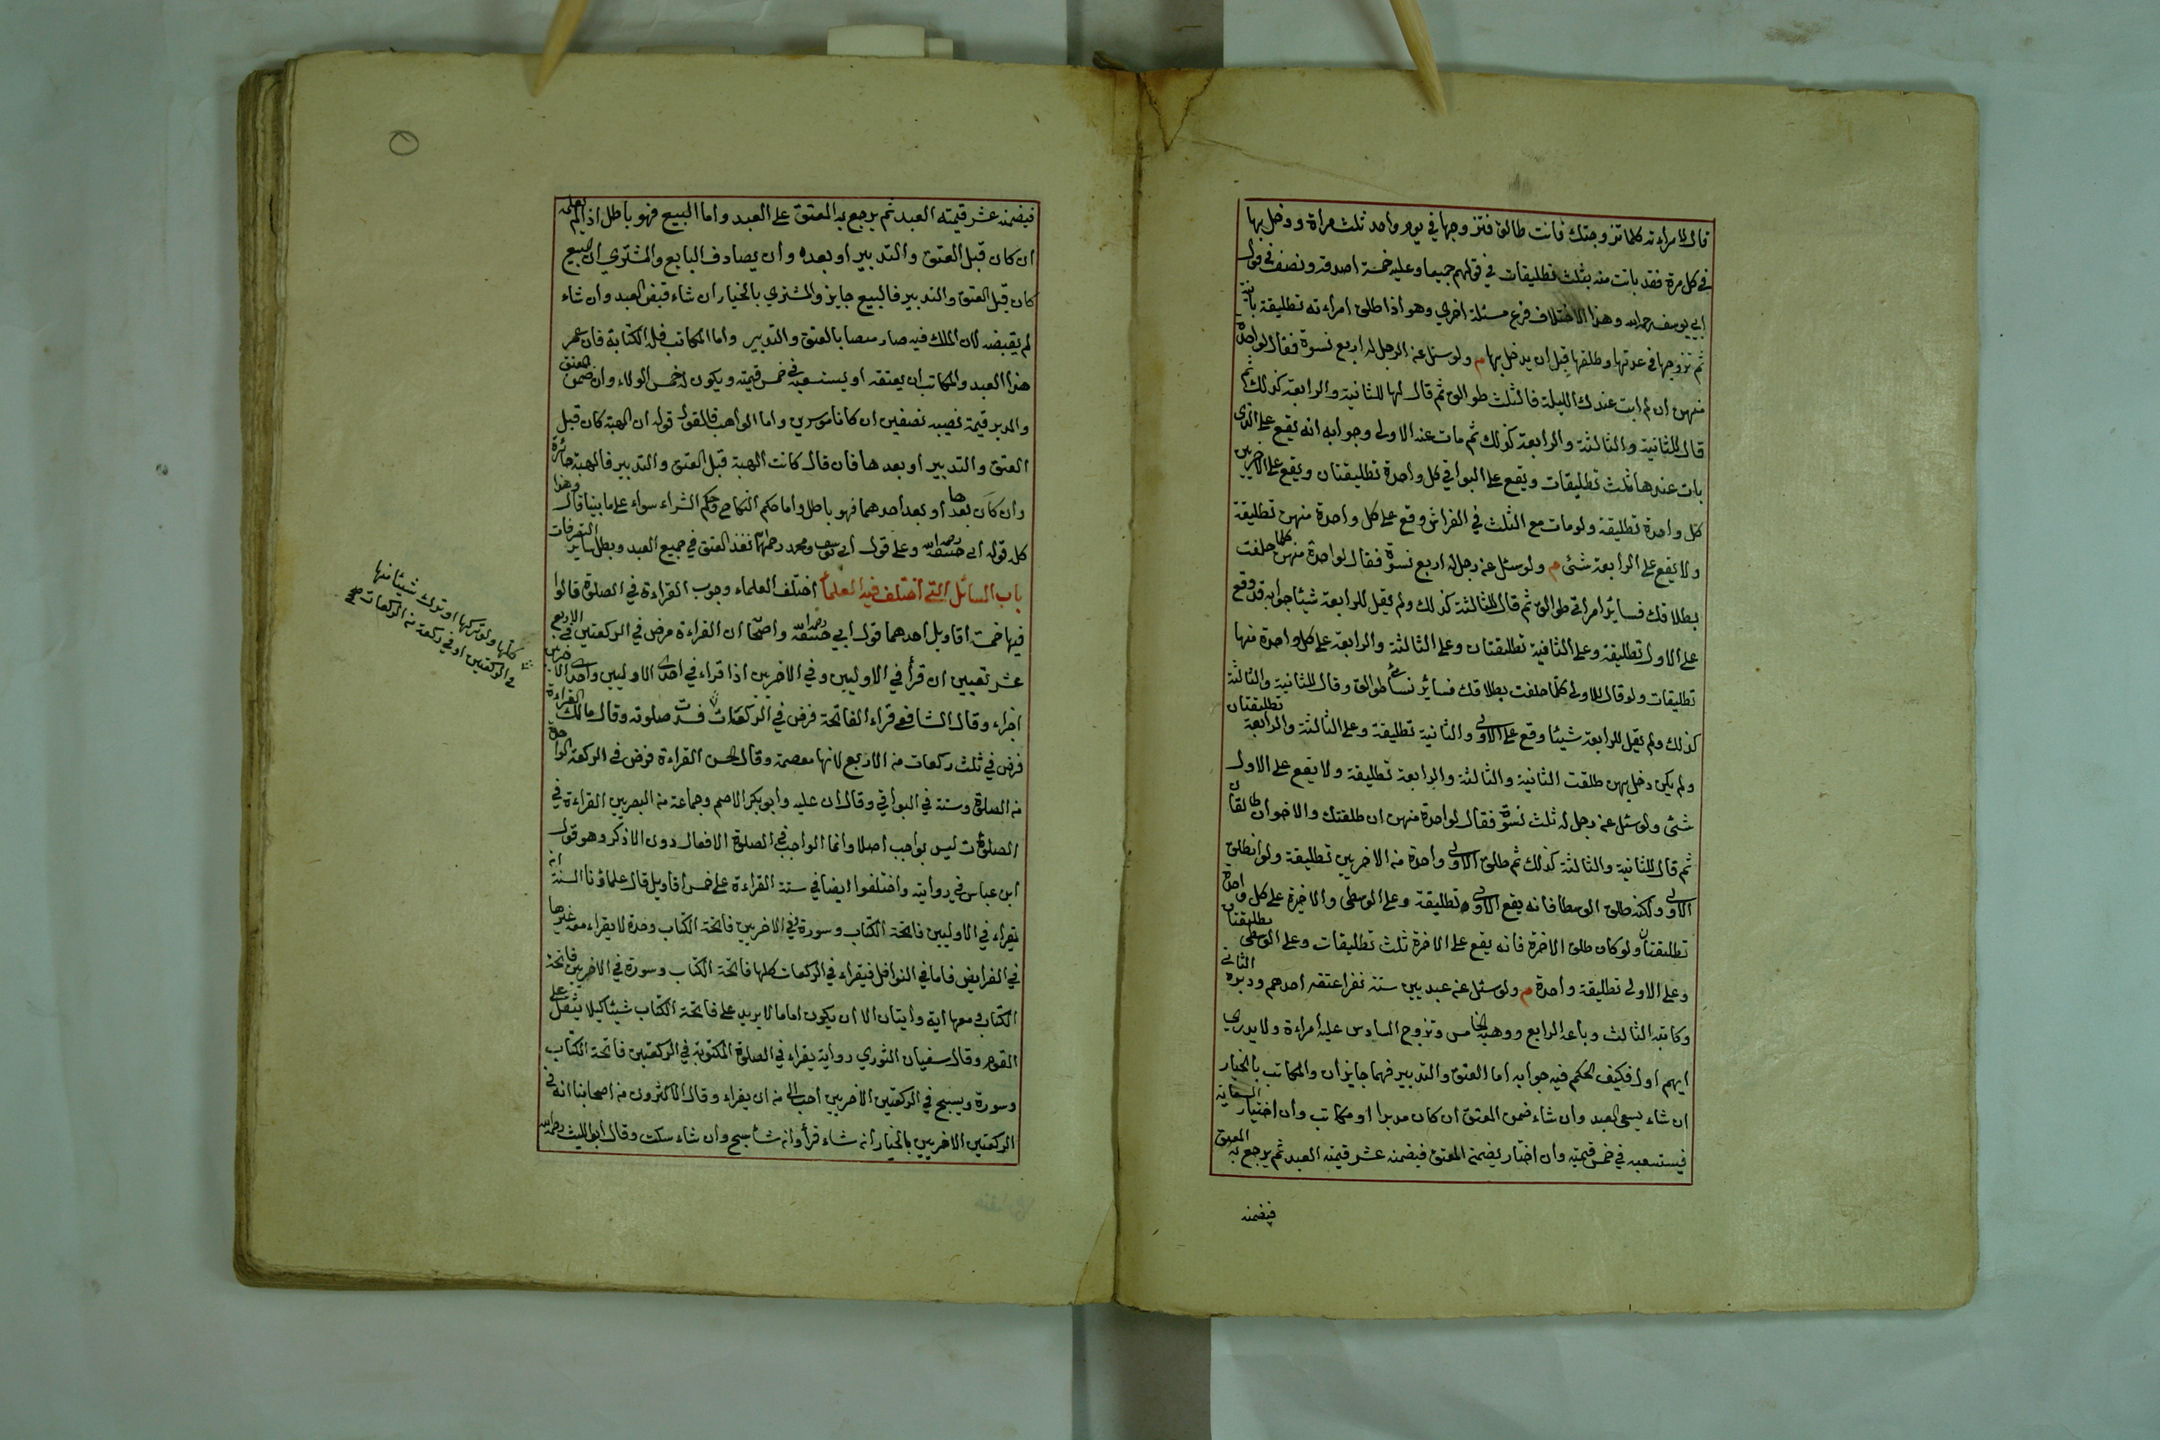 قال لامراءته كلما تزوجتك فانت طالق فتزوجها في يوم واحد ثلث مراة ودخل بها
في كل مرة فقد بانت منه بثلث تطليقات في قولهم جميعا وعليه خمسة اصدقة ونصف في قول
ابي يوسف رحمه الله وهذا الاختلاف فرع مسئلة اخري وهو اذا طلق امراءته تطليقة باينة
ثم تزوجها في عدتها وطلقها قبل ان يدخل بها م ولو سئل عن الرجل له اربع نسوة فقال لواحدة
منهن ان لم ابت عندك الليلة فالثلث طوالق ثم قال لها للثانية والرابعة كذلك ثم
قال للثانية والثالثة والرابعة كذلك ثم مات عند الاولي وجوابه انه يقع على الذي
بات عندها ثلث تطليقات ويقع على البواقي كل واحدة تطليقتان ويقع على الاخرين
كل واحدة تطليقة ولو مات مع الثلث في الفراش وقع على كل واحدة منهن تطليقة
ولا يقع على الرابعة شئ م ولو سئل عن رجل له اربع نسوة فقال لواحدة منهن كلما حلفت
بطلاقك فساير امراتي طوالق ثم قال للثالثة كذلك ولم يقل للرابعة شيئا جوابه قد وقع
على الاول تطليقة وعلى الثانية تطليقتان وعلى الثالثة والرابعة على كل واحدة منها
تطليقات ولو قال للاولي كلما حلفت بطلاقك فساير نسائي طوالق وقال للثانية والثالثة
كذلك ولم يقل للرابعة شيئا وقع على الاولي والثانية تطليقة وعلى الثالثة والرابعة تطليقتان
ولم يكن دخل بهن طلقت الثانية والثالثة والرابعة تطليقة ولا يقع على الاول
شئ ولو سئل عن رجل له ثلث نسوة فقال لواحدة منهن ان طلقتك والاخوان طالقان
ثم قال للثانية والثالثة كذلك ثم طلق الاولي واحدة من الاخريين تطليقة ولو انطلق
الاولي ولكنه طلق الوسطا فانه يقع الاولي تطليقة وعلى الوسطى والاخيرة على كل واحدة
تطليقتان ولو كان طلق الاخرة فانه يقع على الاخرة ثلث تطليقات وعلى الوسطى تطليقتان
وعلى الاولى تطليقة واحدة م ولو سئل عن عبد بين ستة نفر اعتقه احدهم ودبره الثاني
وكاتبه الثالث وباعه الرابع ووهبه الخامس وتزوج السادس عليه امراءة ولا يدري
ايهم اول فكيف الحكم فيه جوابه اما العتق والتدبير فهما جايزان والمكاتب بالخيار
ان شاء يسعى العبد وان شاء ضمن المعتق ان كان مدبرا او مكاتب وان اختيار السعاية
فيستسعيه في خمس قيمته وان اختار يضمن المعتق فيضمنه عشر قيمته العبد ثم يرجع به المعتق
فيضمنه
فيضمنه عشر قيمته العبد ثم يرجع به المعتق على العبد واما البيع فهو باطل اذا لم يعلمه
ان كان قبل العتق والتدبير او بعده وان يصادف البايع والمشتري ان البيع
كان قبل العتق والتدبير فالبيع جايز والمشتري بالخيار ان شاء قبض العبد وان شاء
لم يقبضه لان الملك فيه صار معصا بالعتق والتدبير واما المكاتب فله الكتابة فان عجز
هذا العبد والمكاتب ان يعتقه او يستسعيه في خمس قيمته ويكون له خمس الولاء وان ضمن المعتق
والمدبر قيمة نصيبه نصفين ان كانا موسرين واما الواهب فالقول قوله ان الهبة كان قبل
العتق والتدبير او بعدها فان قال كانت الهبة قبل العتق والتدبير فالهبة جائزة
وان كان بعدها او بعد احدهما فهو باطل واما حكم النكاح حكم الشراء سواء على ما بينا قال وهذا
كله قوله ابي حنيفة رحمه الله وعلى قول ابي يوسف ومحمد رحمهما الله نفذ العتق في جميع العبد وبطل ساير التصرفات
باب المسائل التي اختلف فيه العلماء اختلف العلماء وجوب القراءة في الصلوة قالوا
فيها خمسة اقاويل احدهما قول ابي حنيفة رحمه الله واصحا ان القراءة فرض في الركعتين في الاربع
غير تعيين ان قرأ في الاوليين وفي الاخرين اذا قراء في احدى الاوليين واحدى الاخرين
اجزاء وقال الشافعي قراء الفاتحة فرض في الركعات فسدت صلوته وقال مالك القراءة
فرض في ثلث ركعات من الاربع لانها معصمة وقال الحسن القراءة فرض في الركعة الواحدة
من الصلوة وسنة في البواقي وقال ان عليه وابو بكر الاصم وجماعة من البصريين القراءة في
الصلوات ليس بواجب اصلا وانما الواجب في الصلوة الافعال دون الاذكر وهو قول
ابن عباس في رواية واختلفوا ايضا في سنة القراءة على خمس اقاويل قال علماؤنا السنة انه
يقراء في الاوليين فاتحة الكتاب وسورة في الاخريين فاتحة الكتاب وحدة لا يقراء معه غيرها
في الفرايض فاما في النوافل فيقراء في الركعات كلها فاتحة الكتاب وسورة في الاخريين فاتحة
الكتاب ومعها اية وايتان الا ان يكون اماما لا يريد على فاتحة الكتاب شيئا كيلا يثقل على
القوم وقال سفيان الثوري رواية يقراء في الصلوة المكتوبة في الركعتين فاتحة الكتاب
وسورة ويسبح في الركعتين الاخريين احب الي من ان يقراء وقال الاكثرون من اصحابنا انه في
الركعتين الاخريين بالخيار انه شاء قرأ وانه شأ سبح وان شاء سكت وقال ابو الليث رحمه الله
كلها ولو تركها او ترك شيئا منها
في الركعتين او في ركعة من الركعات صح